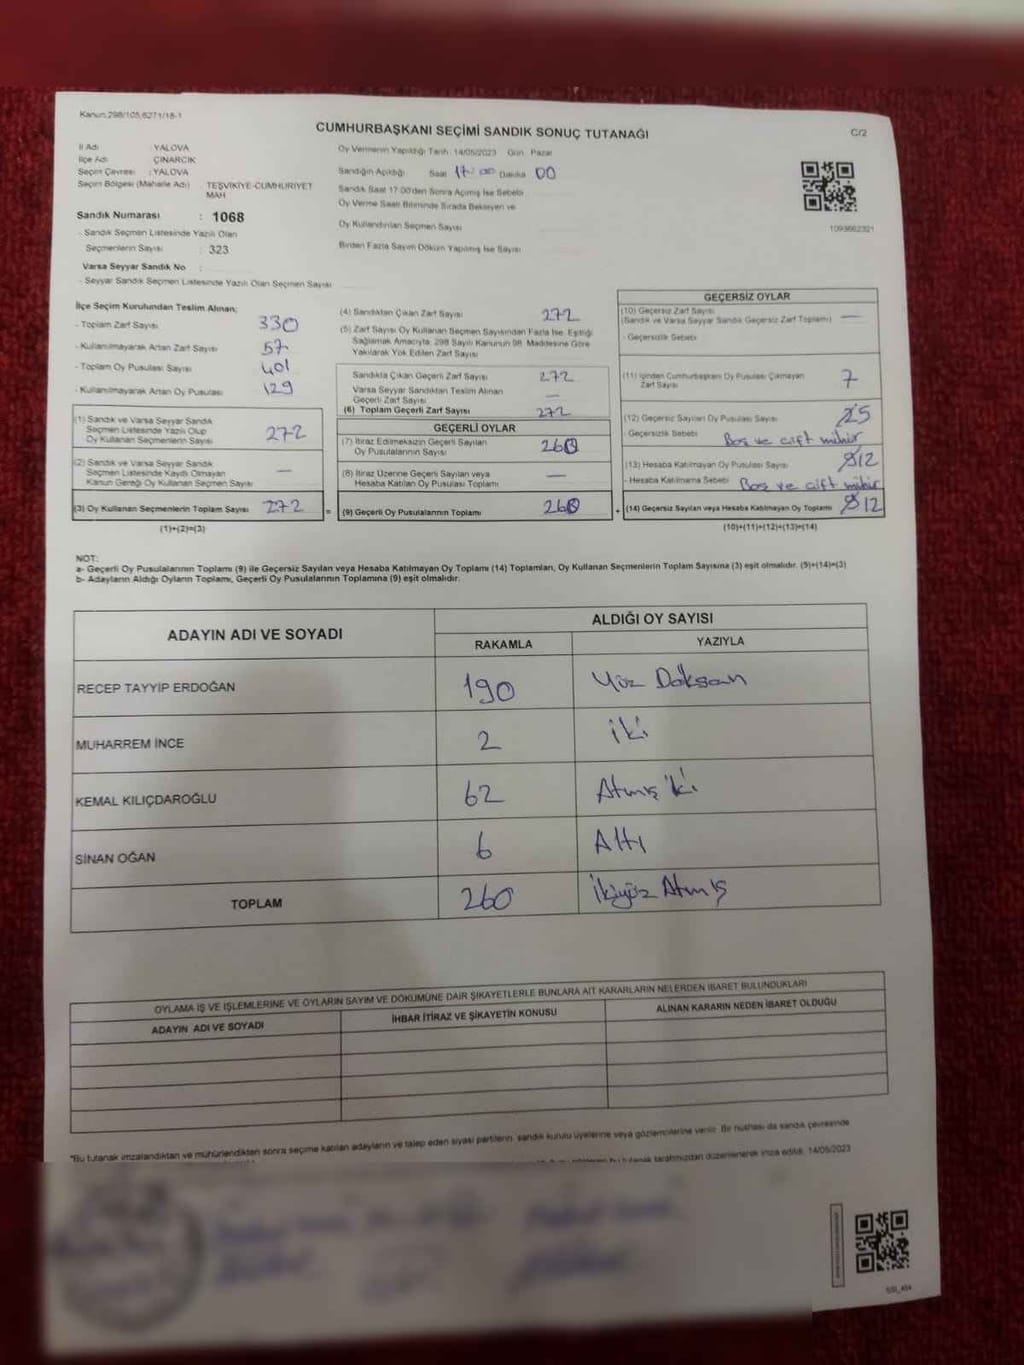 Kanun.298/105,6271/18-1
CUMHURBAŞKANI SEÇİMİ SANDIK SONUÇ TUTANAĞI
C/2
İl Adı : YALOVA
İlçe Adı : ÇINARCIK
Seçim Çevresi : YALOVA
Seçim Bölgesi (Mahalle Adı) TEŞVİKİYE-CUMHURİYET MAH
Sandık Numarası : 1068
- Sandık Seçmen Listesinde Yazılı Olan
Seçmenlerin Sayısı : 323
Varsa Seyyar Sandık No :
- Seyyar Sandık Seçmen Listesinde Yazılı Olan Seçmen Sayısı
Oy Vermenin Yapıldığı Tarih: 14/05/2023 Gün Pazar
Sandığın Açıldığı Saat 17:00 Dakika 00
Sandık Saat 17.00'den Sonra Açılmış İse Sebebi
Oy Verme Saati Bitiminde Sırada Bekleyen ve
Oy Kullandırılan Seçmen Sayısı
Birden Fazla Sayım Döküm Yapılmış İse Sayısı
1093662321
İlçe Seçim Kurulundan Teslim Alınan;
- Toplam Zarf Sayısı 330
- Kullanılmayarak Artan Zarf Sayısı 57
- Toplam Oy Pusulası Sayısı 401
- Kullanılmayarak Artan Oy Pusulası 129
(1) Sandık ve Varsa Seyyar Sandık
Seçmen Listesinde Yazılı Olup
Oy Kullanan Seçmenlerin Sayısı 272
(2) Sandık ve Varsa Seyyar Sandık
Seçmen Listesinde Kaydı Olmayan
Kanun Gereği Oy Kullanan Seçmen Sayısı —
(3) Oy Kullanan Seçmenlerin Toplam Sayısı 272 =
(1)+(2)=(3)
(4) Sandıktan Çıkan Zarf Sayısı 272
(5) Zarf Sayısı Oy Kullanan Seçmen Sayısından Fazla İse, Eşitliği
Sağlamak Amacıyla, 298 Sayılı Kanunun 98. Maddesine Göre
Yakılarak Yok Edilen Zarf Sayısı
Sandıkta Çıkan Geçerli Zarf Sayısı 272
Varsa Seyyar Sandıktan Teslim Alınan
Geçerli Zarf Sayısı —
(6) Toplam Geçerli Zarf Sayısı 272
GEÇERLİ OYLAR
(7) İtiraz Edilmeksizin Geçerli Sayılan
Oy Pusulalarının Sayısı 260
(8) İtiraz Üzerine Geçerli Sayılan veya
Hesaba Katılan Oy Pusulası Toplamı —
(9) Geçerli Oy Pusulalarının Toplamı 260 +
GEÇERSİZ OYLAR
(10) Geçersiz Zarf Sayısı —
(Sandık ve Varsa Seyyar Sandık Geçersiz Zarf Toplamı)
- Geçersizlik Sebebi
(11) İçinden Cumhurbaşkanı Oy Pusulası Çıkmayan
Zarf Sayısı 7
(12) Geçersiz Sayılan Oy Pusulası Sayısı 5
- Geçersizlik Sebebi Boş ve çift mühür
(13) Hesaba Katılmayan Oy Pusulası Sayısı 12
- Hesaba Katılmama Sebebi Boş ve çift mühür
(14) Geçersiz Sayılan veya Hesaba Katılmayan Oy Toplamı 12
(10)+(11)+(12)+(13)=(14)
NOT:
a- Geçerli Oy Pusulalarının Toplamı (9) ile Geçersiz Sayılan veya Hesaba Katılmayan Oy Toplamı (14) Toplamları, Oy Kullanan Seçmenlerin Toplam Sayısına (3) eşit olmalıdır. (9)+(14)=(3)
b- Adayların Aldığı Oyların Toplamı, Geçerli Oy Pusulalarının Toplamına (9) eşit olmalıdır.
ADAYIN ADI VE SOYADI
ALDIĞI OY SAYISI
RAKAMLA YAZIYLA
RECEP TAYYİP ERDOĞAN 190 Yüz Doksan
MUHARREM İNCE 2 iki
KEMAL KILIÇDAROĞLU 62 Atmış iki
SİNAN OĞAN 6 Altı
TOPLAM 260 İkiyüz Atmış
OYLAMA İŞ VE İŞLEMLERİNE VE OYLARIN SAYIM VE DÖKÜMÜNE DAİR ŞİKAYETLERLE BUNLARA AİT KARARLARIN NELERDEN İBARET BULUNDUKLARI
ADAYIN ADI VE SOYADI İHBAR İTİRAZ VE ŞİKAYETİN KONUSU ALINAN KARARIN NEDEN İBARET OLDUĞU
*Bu tutanak imzalandıktan ve mühürlendikten sonra seçime katılan adayların ve talep eden siyasi partilerin sandık kurulu üyelerine veya gözlemcilerine verilir. Bir nüshası da sandık çevresinde
bu tutanak tarafımızdan düzenlenerek imza edildi. 14/05/2023